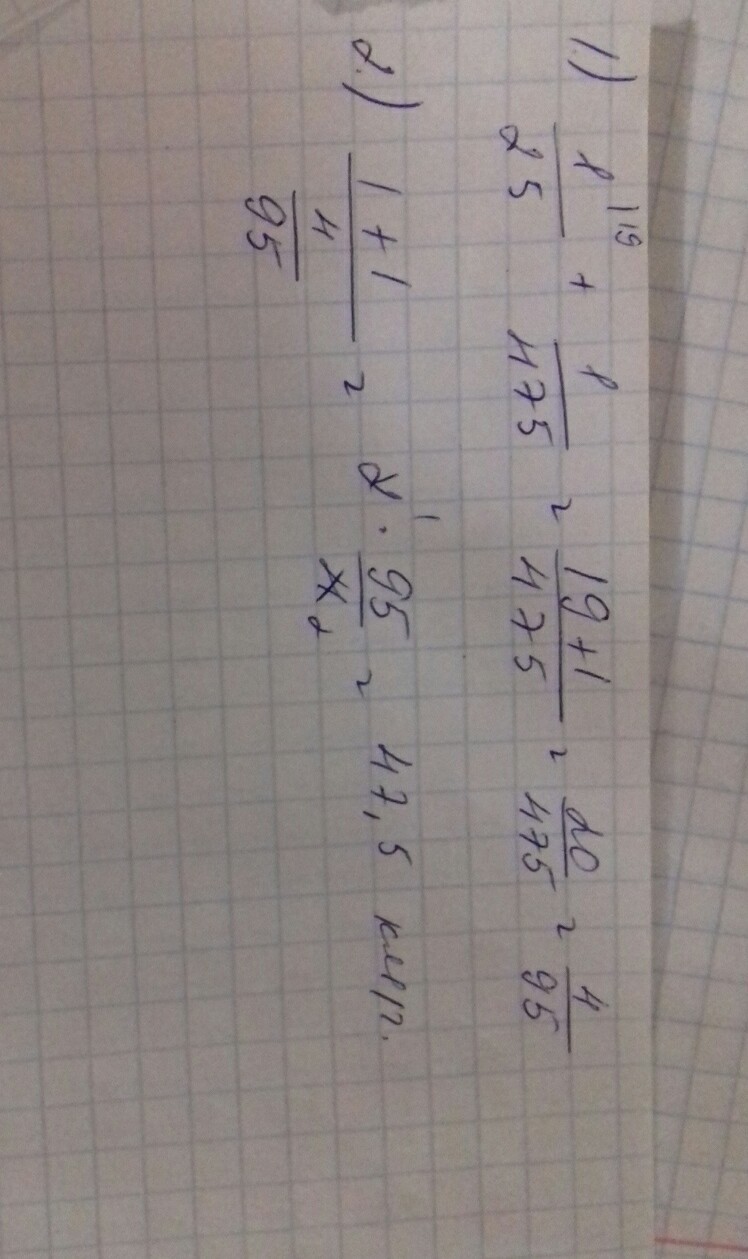 1.) 1/25 |19 + 1/475 = 19+1/475 = 20/475 = 4/95
2.) 1+1/(4/95) = 2 · 95/4 1 2 = 47,5 км/ч.